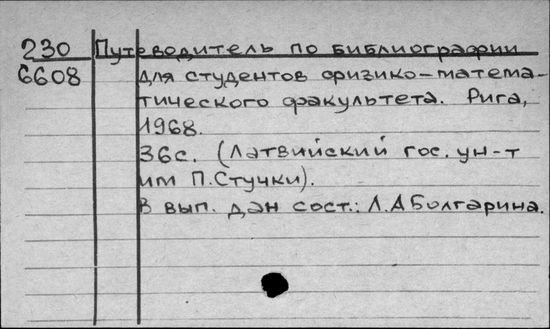 230 Путеводитель по библиографии
6608 для студентов физико-матема-
тического факультета. Рига,
1968.
36с. (Латвийский гос. ун-т
им П.Стучки).
В вып. дан сост.: Л.А Болгарина.